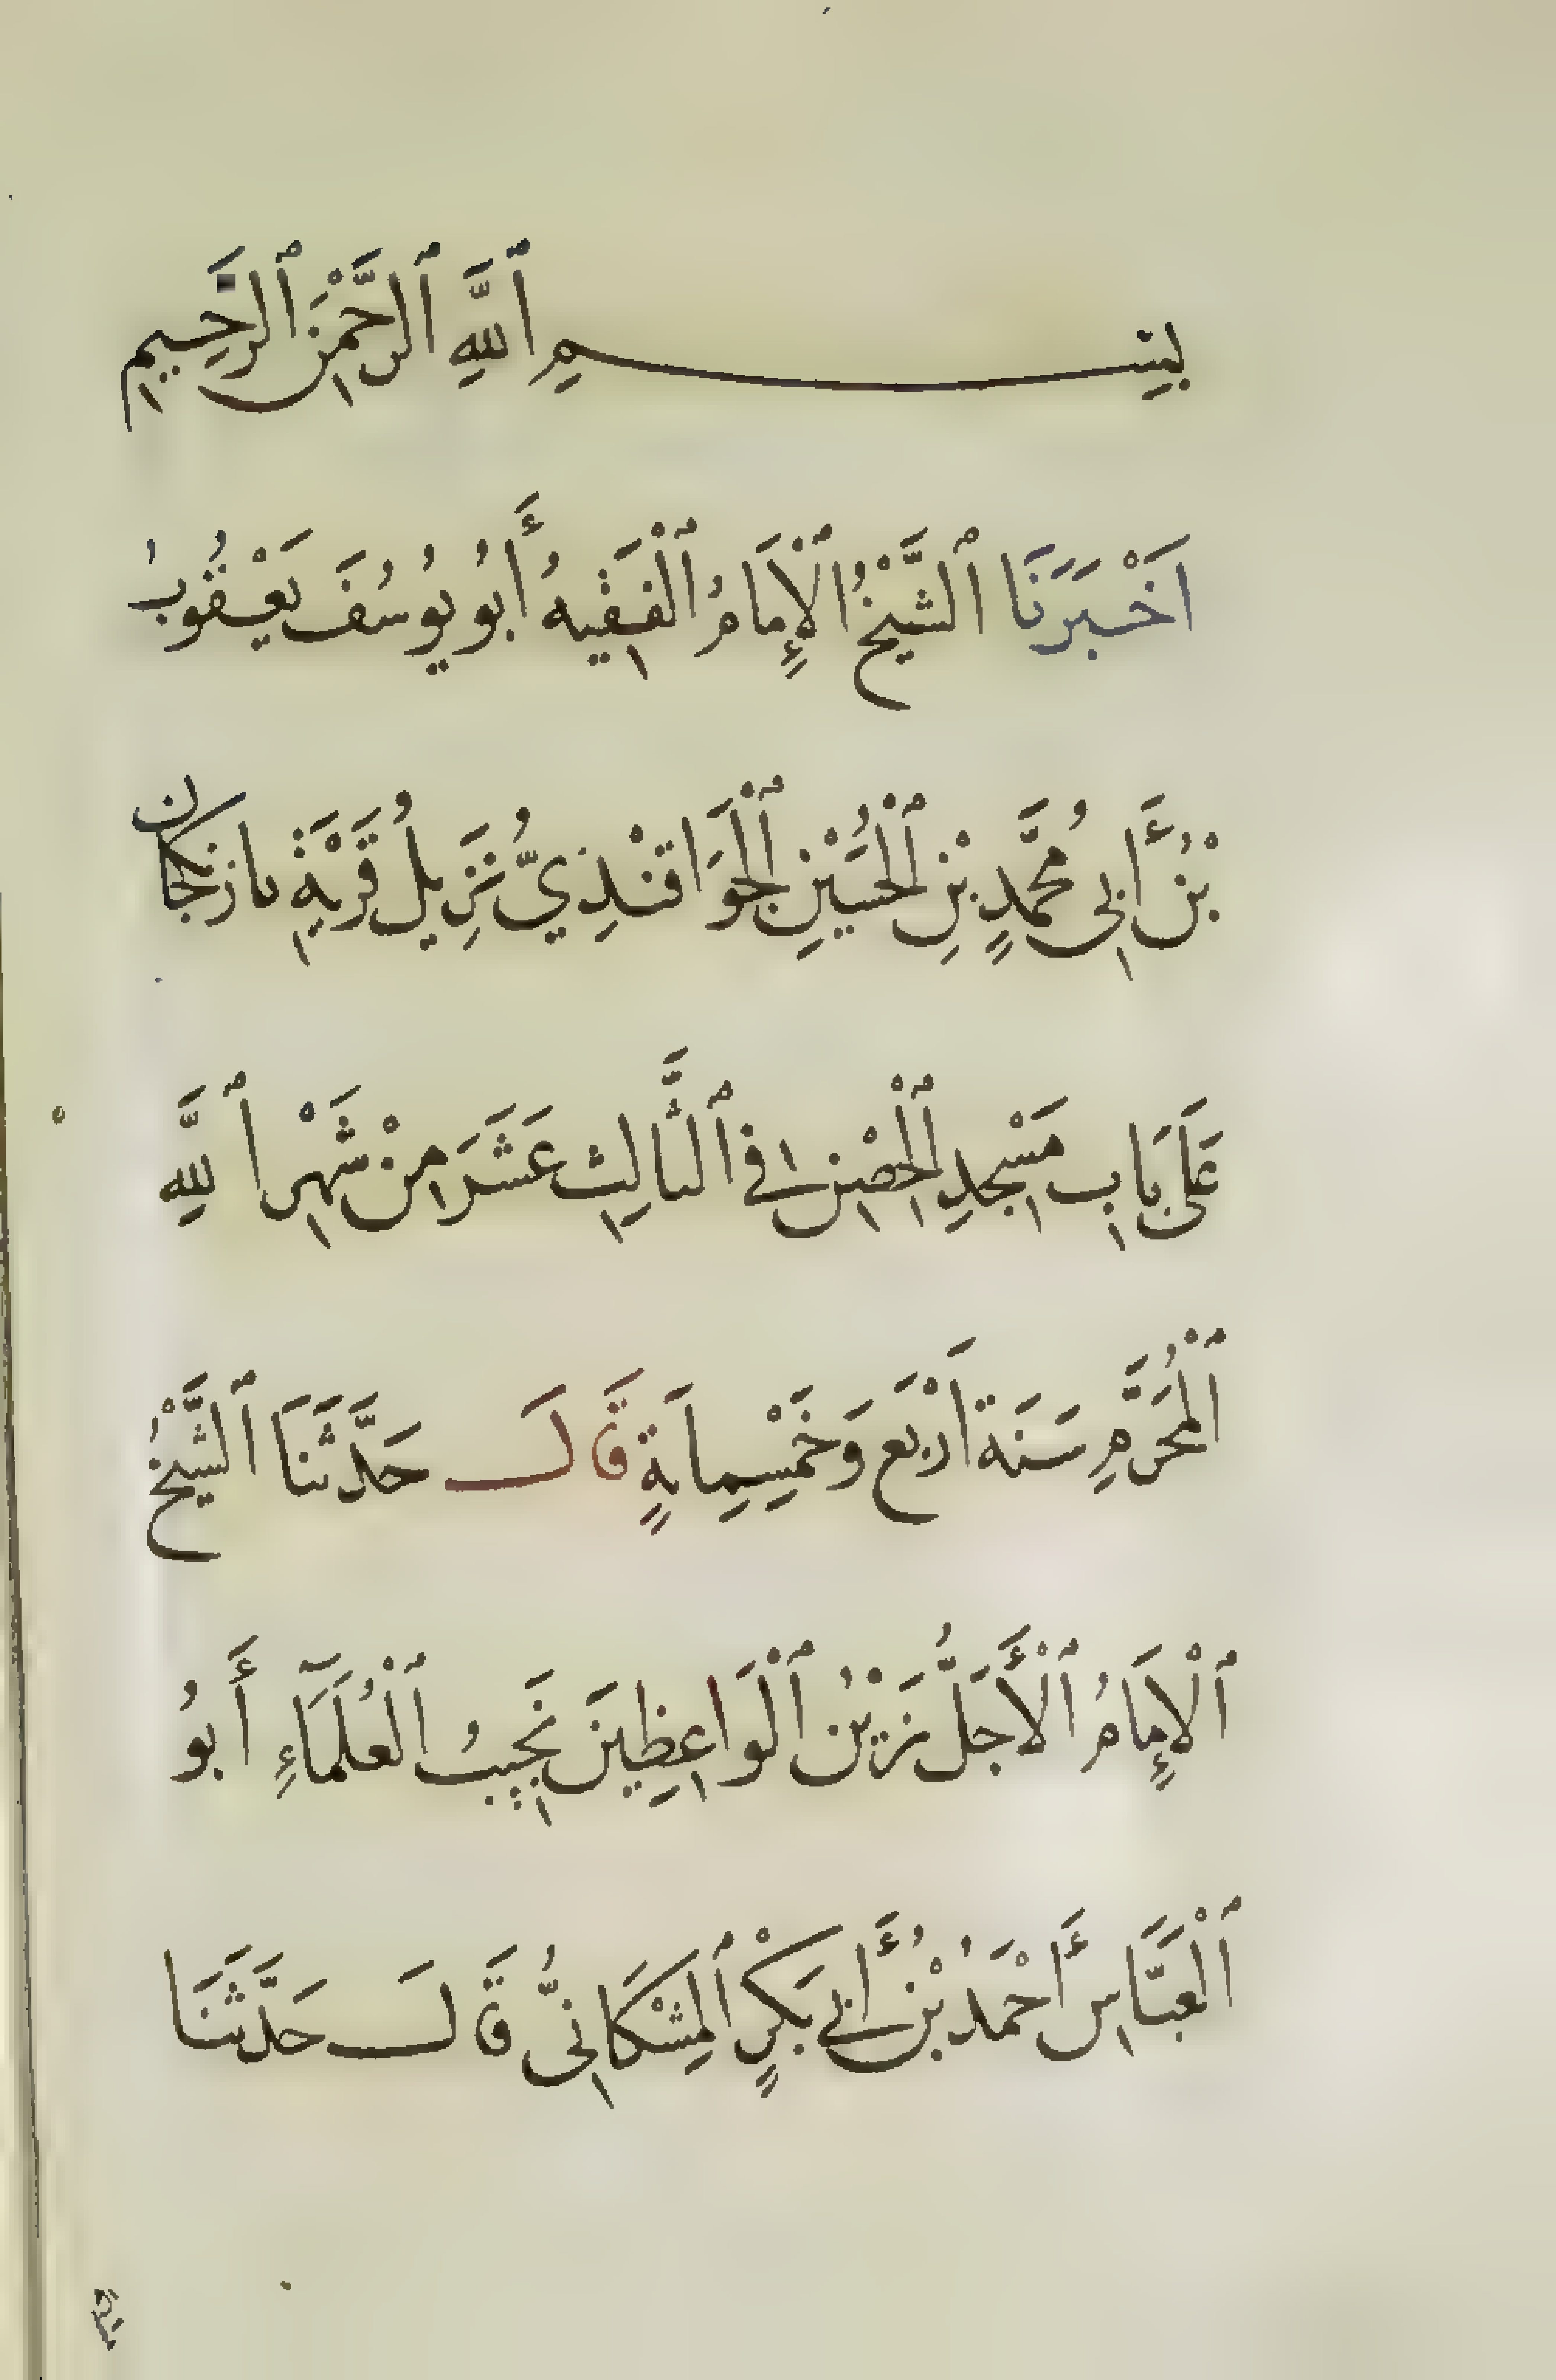 بِسْمِ ٱللَّهِ ٱلرَّحْمٰنِ ٱلرَّحِيمِ
اَخْبَرَنَا ٱلشَّيْخُ ٱلْإِمَامُ ٱلْفَقِيهُ أَبُو يُوسُفَ يَعْقُوبُ
بْنُ أَبِي مُحَمَّدٍ بْنِ ٱلْحُسَيْنِ ٱلْجَوَاقَنْذِيُّ نَزِيلُ قَرْيَةِ بازنجكان
عَلَىٰ بَابِ مَسْجِدِ ٱلْحِصْنِ فِي ٱلثَّالِثِ عَشَرَ مِنْ شَهْرِ ٱللَّهِ
ٱلْمُحَرَّمِ سَنَةَ اَرْبَعَ وَخَمْسِمِايَةٍ قَالَ حَدَّثَنَا ٱلشَّيْخُ
ٱلْإِمَامُ ٱلْأَجَلُّ زَيْنُ ٱلْوَاعِظِينَ نَجِيبُ ٱلْعُلَمَآءِ أَبُو
ٱلْعَبَّاسِ أَحْمَدُ بْنُ أَبِي بَكْرٍ ٱلْمِشْكَانِيُّ قَالَ حَدَّثَنَا